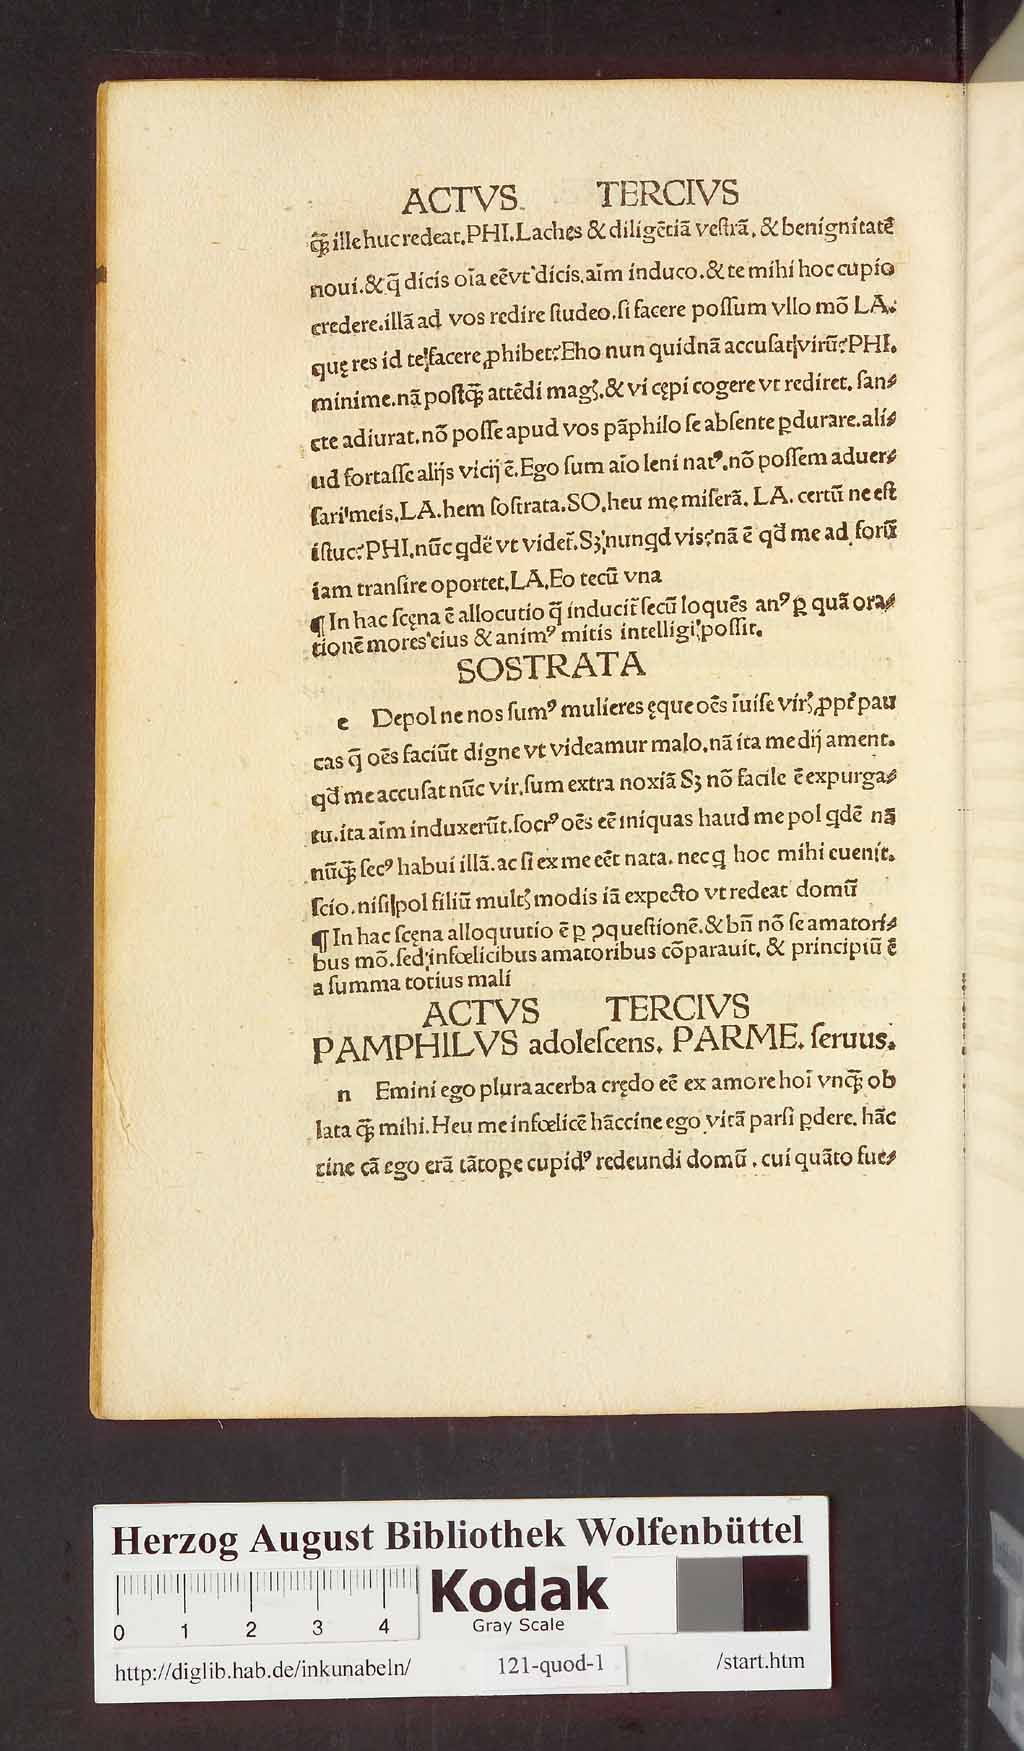 ACTVS TERCIVS
q̃ꝫ ille huc redeat. PHI. Laches & diligẽtiã veſtrã, & benignitatẽ
noui. & q̃ dicis oĩa eẽ vt dicis. aĩm induco. & te mihi hoc cupio
credere. illã ad vos redire ſtudeo. ſi facere poſſum vllo mõ LA.
quę res id te facere ꝓhibet? Eho nun quidnã accuſat virũ? PHI.
minime. nã poſtq̃ꝫ attẽdi magꝭ. & vi cępi cogere vt rediret. ſan⸗
cte adiurat. nõ poſſe apud vos pãphilo ſe abſente ꝑdurare. ali⸗
ud fortaſſe alijs vicij ẽ. Ego ſum aĩo leni natꝰ. nõ poſſem aduer⸗
ſari meis. LA. hem ſoſtrata. SO. heu mę miſerã. LA. certũ ne eſt
iſtuc? PHI. nũc qdẽ vt videt̃. Sꝫ nunqd vis? nã ẽ qd̃ me ad forũ
iam tranſire oportet. LA. Eo tecũ vna
¶ In hac ſcęna ẽ allocutio q̃ inducit̃ ſecũ loquẽs anꝰ ꝑ quã ora⸗
tionẽ mores eius & animꝰ mitis intelligi poſſit.
SOSTRATA
e Depol ne nos ſumꝰ mulieres ęque oẽs ĩuiſe virꝭ ꝓpt̃ pau
cas q̃ oẽs faciũt digne vt videamur malo. nã ita me dij ament.
qd̃ me accuſat nũc vir. ſum extra noxiã Sꝫ nõ facile ẽ expurga⸗
tu. ita aĩm induxerũt. ſocrꝰ oẽs eẽ iniquas haud me pol qdẽ nã
nũq̃ꝫ ſecꝰ habui illã. ac ſi ex me eẽt nata. nec q hoc mihi euenit.
ſcio. niſi pol filiũ multꝭ modis iã expecto vt redeat domũ
¶ In hac ſcęna alloquutio ẽ ꝑ ꝯqueſtionẽ. & bñ nõ ſe amatori⸗
bus mõ. ſed infœlicibus amatoribus cõparauit. & principiũ ẽ
a ſumma totius mali
ACTVS TERCIVS
PAMPHILVS adoleſcens. PARME. ſeruus.
n Emini ego plura acerba crędo eẽ ex amore hoĩ vnq̃ꝫ ob
lata q̃ꝫ mihi. Heu me infœlicẽ hãccine ego vitã parſi ꝑdere. hãc
cine cã ego erã tãtoꝑe cupidꝰ redeundi domũ. cui quãto fue⸗
Herzog August Bibliothek Wolfenbüttel
0 1 2 3 4
Kodak
Gray Scale
http://diglib.hab.de/inkunabeln/ 121-quod-1 /start.htm